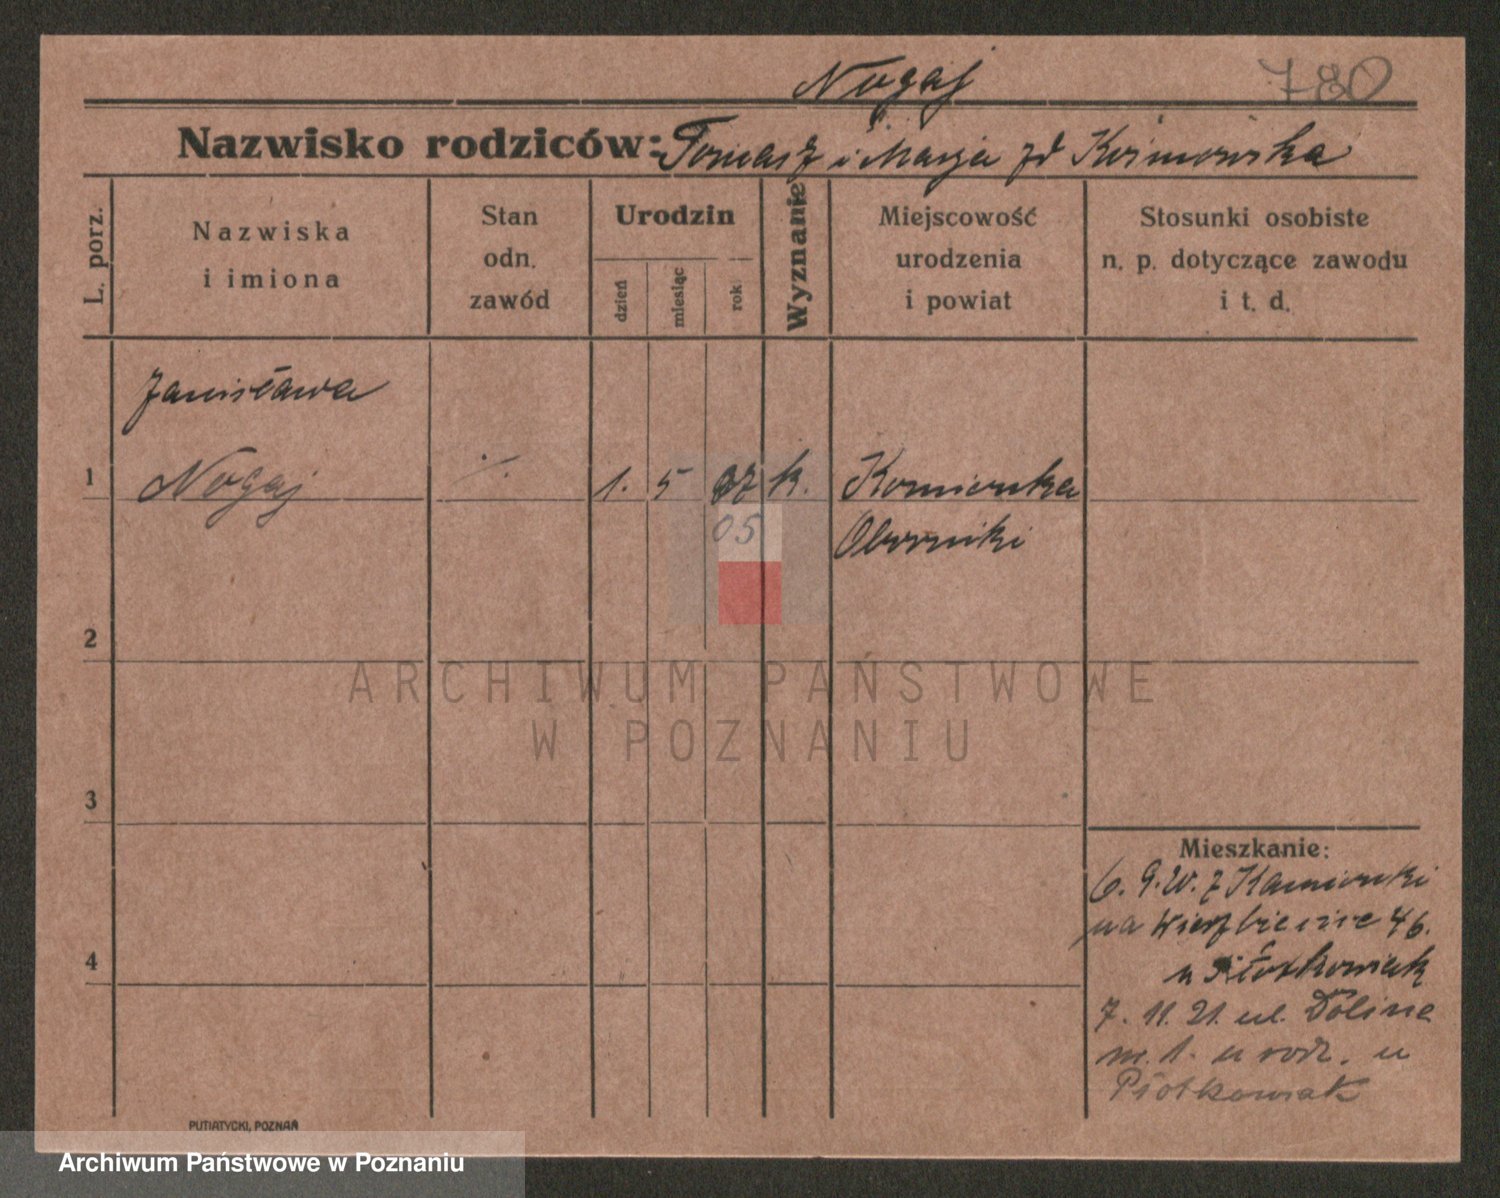 Nogaj
780
Nazwisko rodziców: Tomasz i Marja zd Kośmowska
L. porz.
Nazwiska
i imiona
Stan
odn.
zawód
Urodzin
dzień
miesiąc
rok
Wyznanie
Miejscowość
urodzenia
i powiat
Stosunki osobiste
n. p. dotyczące zawodu
i t. d.
Janisława
1 Nogaj ./. 1. 5 07 k.
05
Oborniki
2
3
4
Mieszkanie:
6. 9. 20. z
na Wierzbiecice 46.
u Piotkowiak
7. 11. 21. ul. Dolina
m. 1. u rodz. u
Piotkowiak
PUTIATYCKI, POZNAŃ
ARCHIWUM PAŃSTWOWE
W POZNANIU
Archiwum Państwowe w Poznaniu